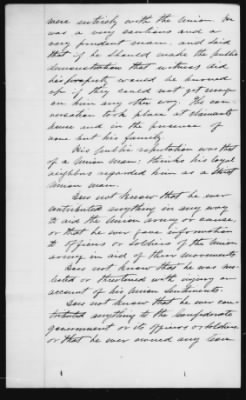 were entirely with the Union. He
was a very cautious and a
very prudent man, and said
that if he should make the public
demonstration that witness did
his property would be burned
up if they could not get revenge
on him any other way. His con-
versation took place at claimants
house and in the presence of
none but his family.
His public reputation was that
of a Union man: thinks his loyal
neighbors regarded him as a
Union man.
Does not know that he ever
contributed anything in any way
to aid the Union army or cause,
or that he ever gave information
to officers or soldiers of the Union
army in aid of their movements
Does not know that he was mo-
lested or threatened with injury on
account of his Union sentiments.
Does not know that he ever con-
tributed anything to the Confederate
government or its officers or soldiers
or that he ever owned any Con-